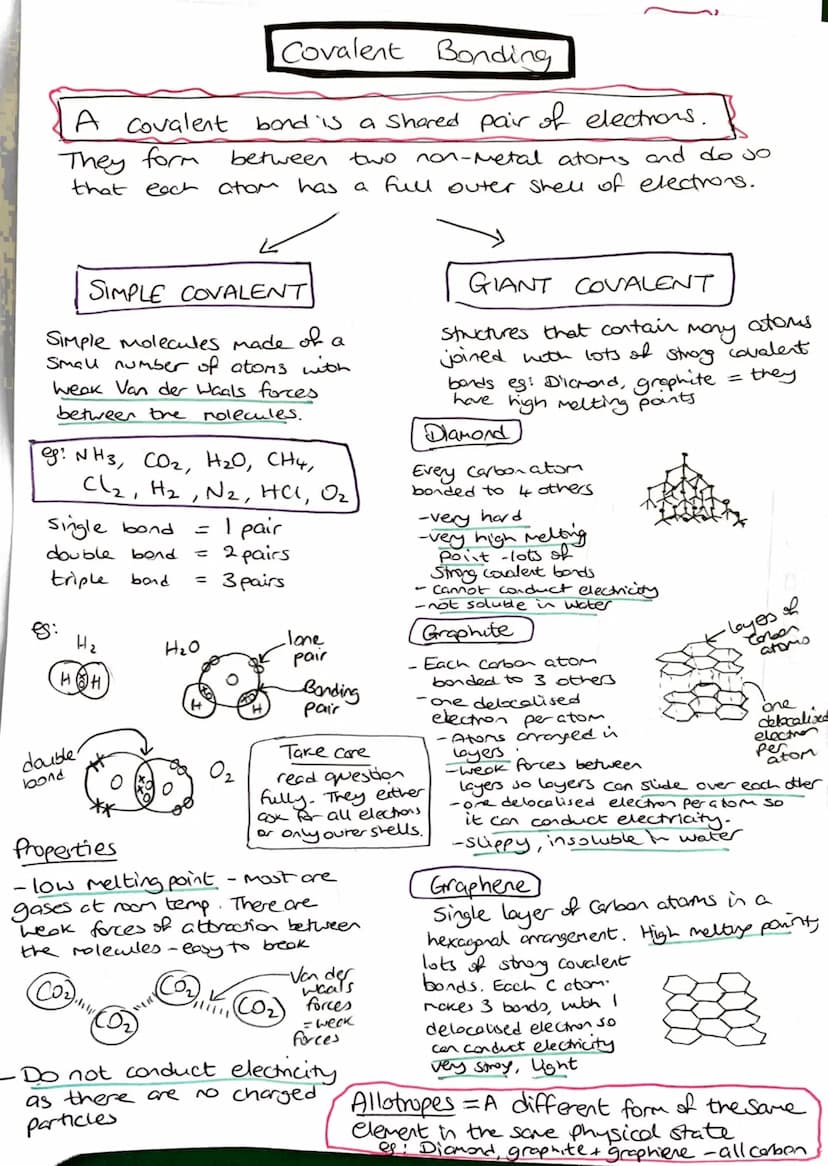 Covalent Bonding
A covalent bond is a shared pair of electrons.
They form between two non-metal atoms and do so
that each atom has a full outer shell of electrons.
SIMPLE COVALENT
Simple molecules made of a
small number of atoms with
weak Van der Waals forces
between the molecules.
eg: NH3, CO2, H2O, CH4,
Cl2, H2, N2, HCl, O2
single bond = 1 pair
double bond = 2 pairs
triple bond = 3 pairs
eg:
H2
H H
H2O
O
H H
lone
pair
Bonding
pair
double
bond
O O
O2
Take care
read question
fully. They either
ask for all electrons
or only outer shells.
Properties
- low melting point - most are
gases at room temp. There are
weak forces of attraction between
the molecules - easy to break
CO2 CO2 CO2 CO2
Van der
Waals
forces
= weak
forces
- Do not conduct electricity
as there are no charged
particles
GIANT COVALENT
structures that contain many atoms
joined with lots of strong covalent
bonds eg: Diamond, graphite = they
have high melting points
Diamond
Every carbon atom
bonded to 4 others
- very hard
- very high melting
point - lots of
strong covalent bonds
- cannot conduct electricity
- not soluble in water
Graphite
- Each carbon atom
bonded to 3 others
- one delocalised
electron per atom
- Atoms arranged in
layers
- weak forces between
layers so layers can slide over each other
- one delocalised electron per atom so
it can conduct electricity.
- slippy, insoluble in water
layers of
carbon
atoms
one
delocalised
electron
per
atom
Graphene
Single layer of carbon atoms in a
hexagonal arrangement. High melting point,
lots of strong covalent
bonds. Each C atom
makes 3 bonds, with 1
delocalised electron so
can conduct electricity
very strong, light
Allotropes = A different form of the same
element in the same physical state
eg: Diamond, graphite + graphene - all carbon